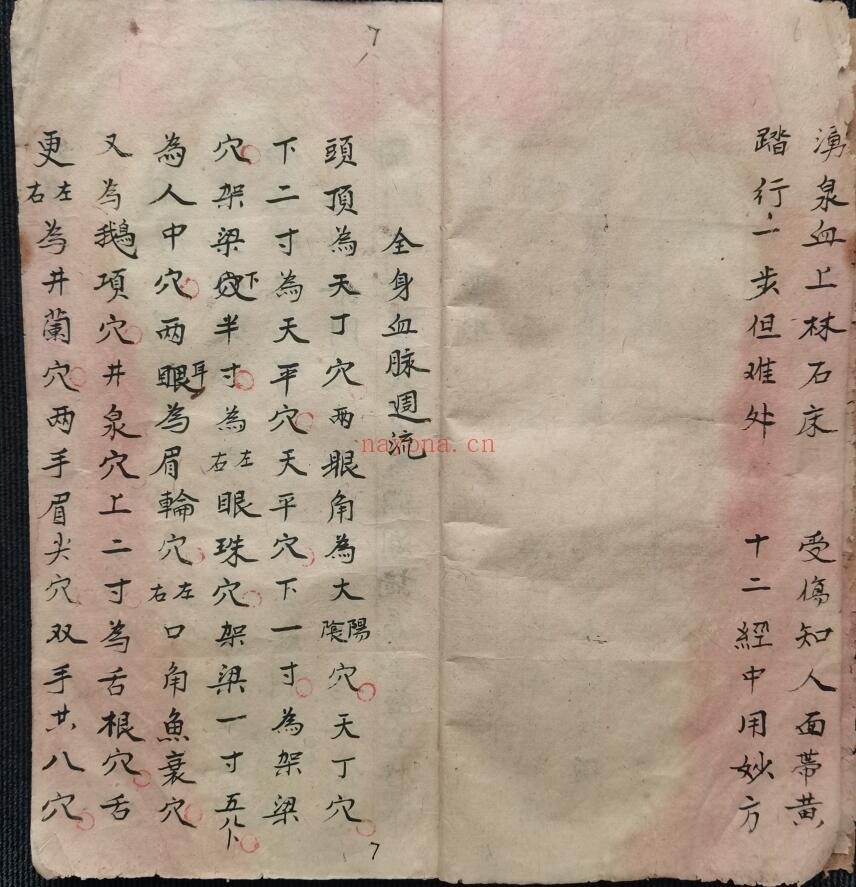 湧泉血上林石床　受傷知人面帶黃
踏行一步但难外　十二經中用妙方
7
全身血脉週流
頭頂為天丁穴两眼角為大陽陰穴天丁穴
下二寸為天平穴天平穴下一寸為架梁
穴架梁穴下半寸為左右眼珠穴架梁一寸五分下
為人中穴两眼耳為眉輪穴左右口角魚衰穴
又為鵝項穴井泉穴上二寸為舌根穴舌
更左右為井蘭穴两手眉尖穴双手共八穴
7
nayona.cn